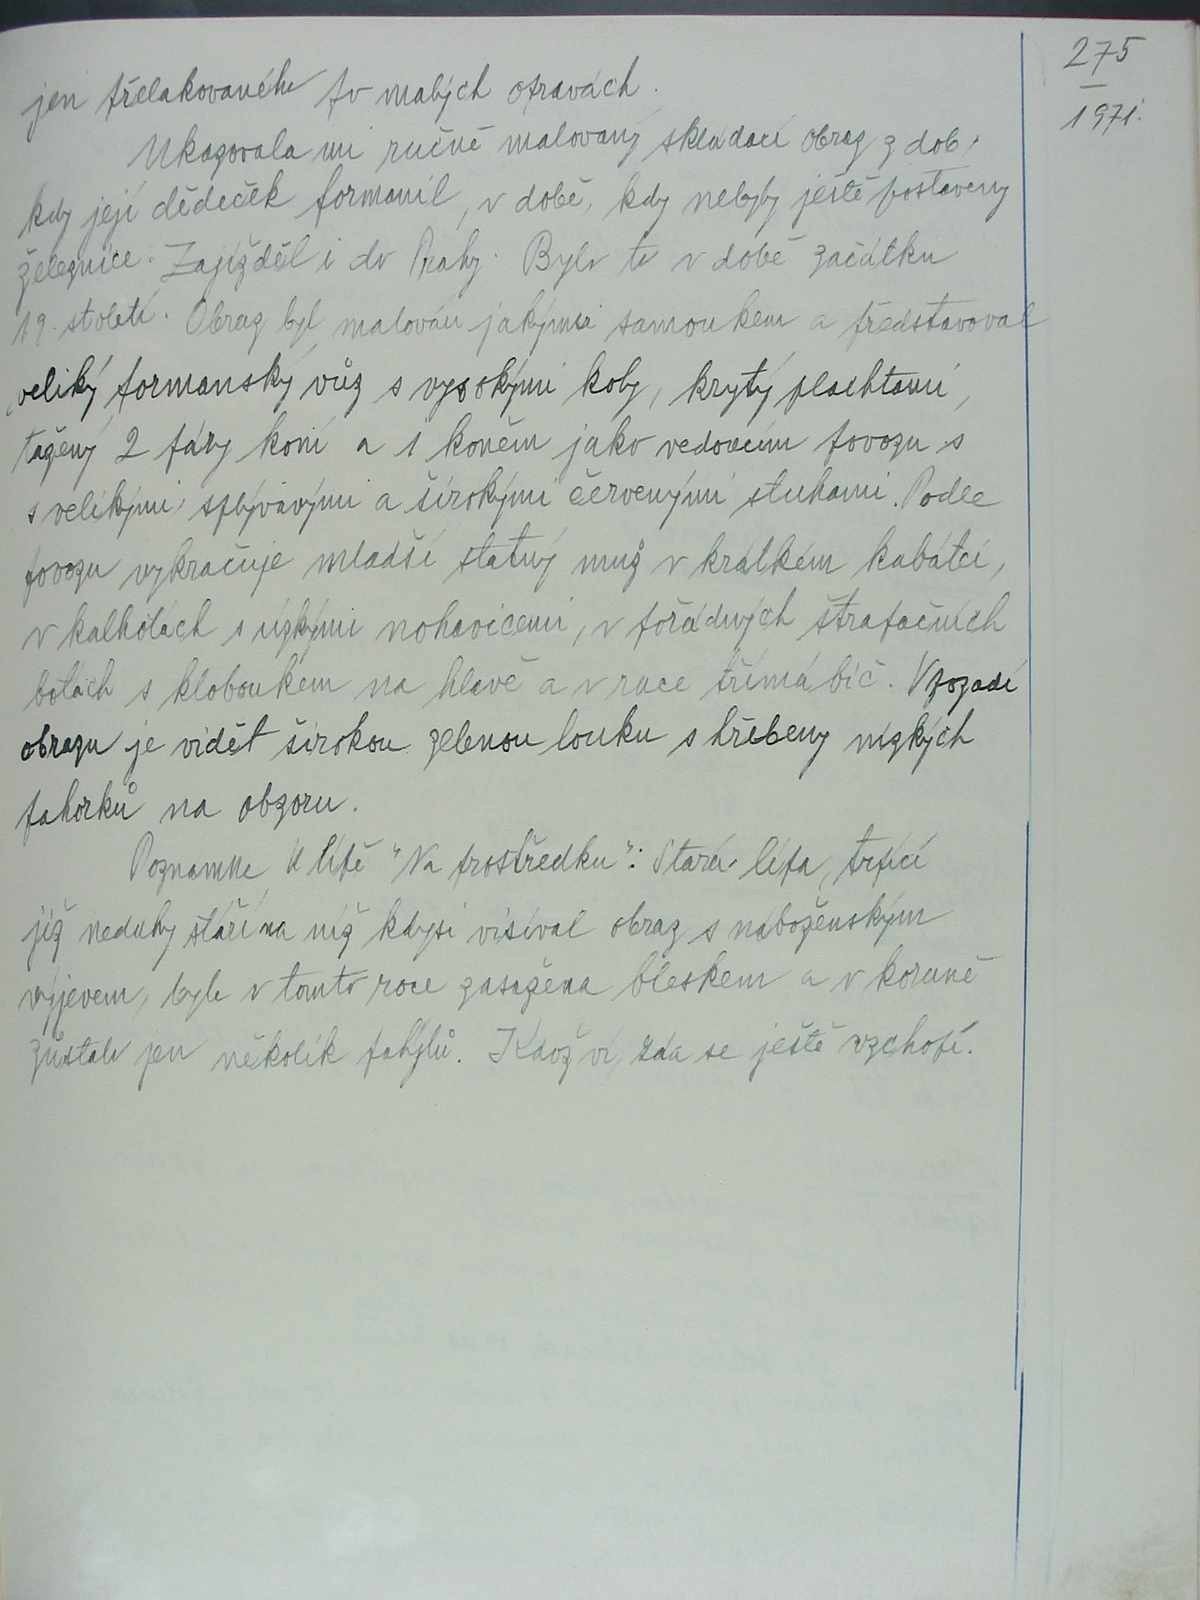 275
1971.
jen přelakovaného po malých opravách.
Ukazovala mi ručně malovaný skládací obraz z dob,
kdy její dědeček formanil, v době, kdy nebyly ještě postaveny
železnice. Zajížděl i do Prahy. Bylo to v době začátku
19. století. Obraz byl malován jakýmsi samoukem a představoval
veliký formanský vůz s vysokými koly, krytý plachtami,
tažený 2 páry koní a 1 koněm jako vedoucím povozu s
s velikými splývavými a širokými červenými stuhami. Podle
povozu vykračuje mladší statný muž v krátkém kabátci,
v kalhotách s úzkými nohavicemi, v pořádných štrapačních
botách s kloboukem na hlavě a v ruce třímá bič. V pozadí
obrazu je vidět širokou zelenou louku s hřebeny nízkých
pahorků na obzoru.
Poznámka k lípě "Na prostředku": Stará lípa, trpící
již neduhy stáří na níž kdysi visíval obraz s náboženským
výjevem, byla v tomto roce zasažena bleskem a v koruně
zůstalo jen několik pahýlů. Kdož ví, zda se ještě vzchopí.